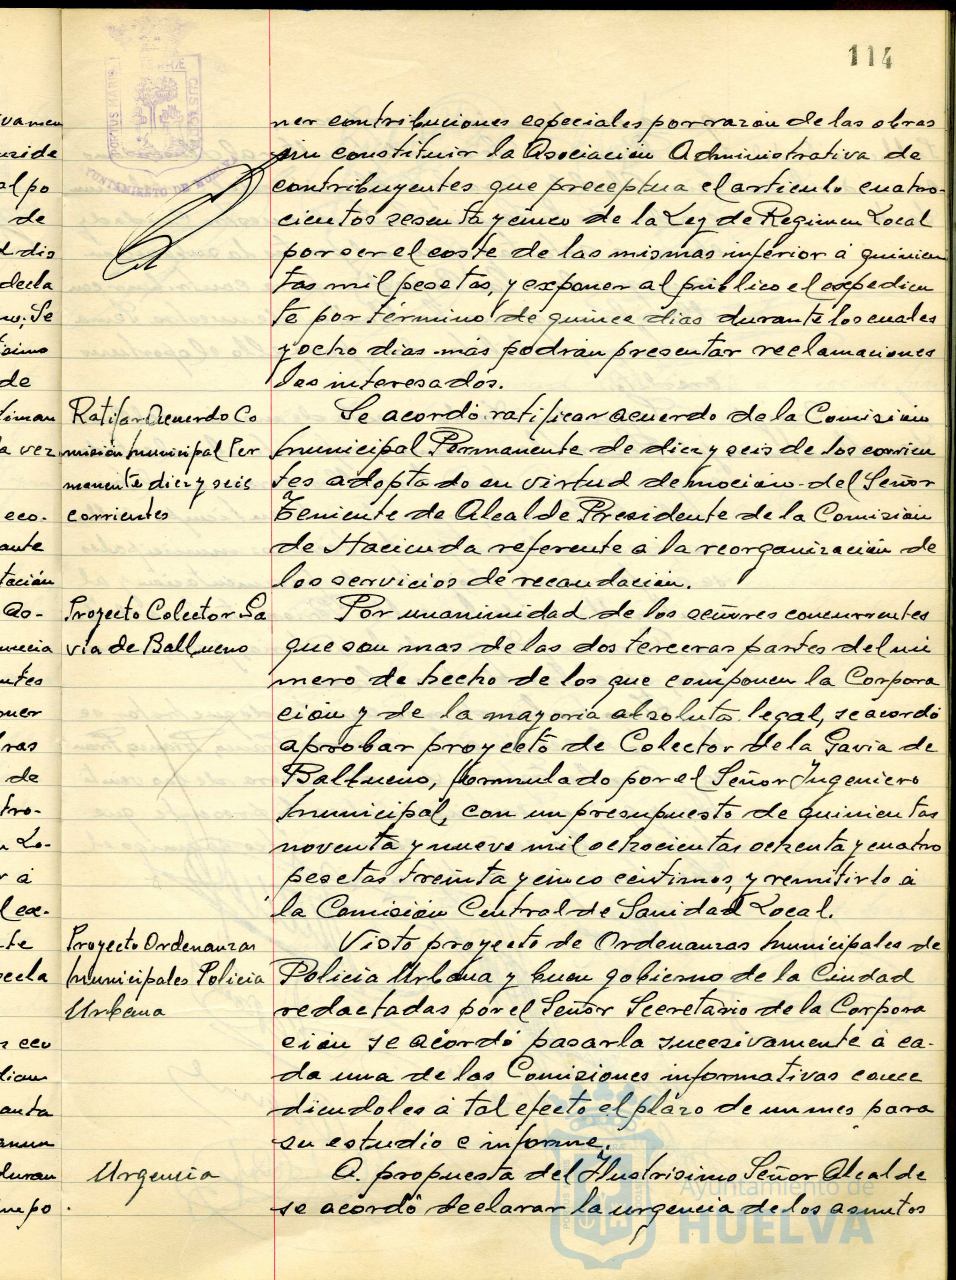 114
ner contribuciones especiales por razon de las obras
sin constituir la Asociación Administrativa de
contribuyentes que preceptua el articulo cuatro-
cientos sesenta y cinco de la Ley de Regimen Local
por ser el coste de las mismas inferior á quinien
tas mil pesetas, y exponer al público el expedien
te por término de quince dias durante los cuales
y ocho dias mas podrán presentar reclamaciones
los interesados.
Ratificar Acuerdo Co
misión Municipal Per
manente diez y seis
corrientes
Se acordó ratificar acuerdo de la Comisión
Municipal Permanente de diez y seis de los corrien
tes adoptado en virtud de moción del Señor
Teniente de Alcalde Presidente de la Comisión
de Hacienda referente á la reorganización de
los servicios de recaudación.
Proyecto Colector Ga
via de Balbueno
Por unanimidad de los señores concurrentes
que son mas de las dos terceras partes del nú
mero de hecho de los que componen la Corpora
ción y de la mayoria absoluta legal, se acordó
aprobar proyecto de Colector de la Gavia de
Balbueno, formulado por el Señor Ingeniero
Municipal, con un presupuesto de quinientas
noventa y nueve mil ochocientas ochenta y cuatro
pesetas treinta y cinco centimos, y remitirlo á
la Comisión Central de Sanidad Local.
Proyecto Ordenanzas
Municipales Policia
Urbana
Visto proyecto de Ordenanzas Municipales de
Policia Urbana y buen gobierno de la Ciudad
redactadas por el Señor Secretario de la Corpora
ción se acordó pasarla sucesivamente á ca-
da una de las Comisiones informativas conce
diendoles á tal efecto el plazo de un mes para
su estudio e informe.
Urgencia
A propuesta del Ilustrisimo Señor Alcalde
se acordó declarar la urgencia de los asuntos
Ayuntamiento de
HUELVA